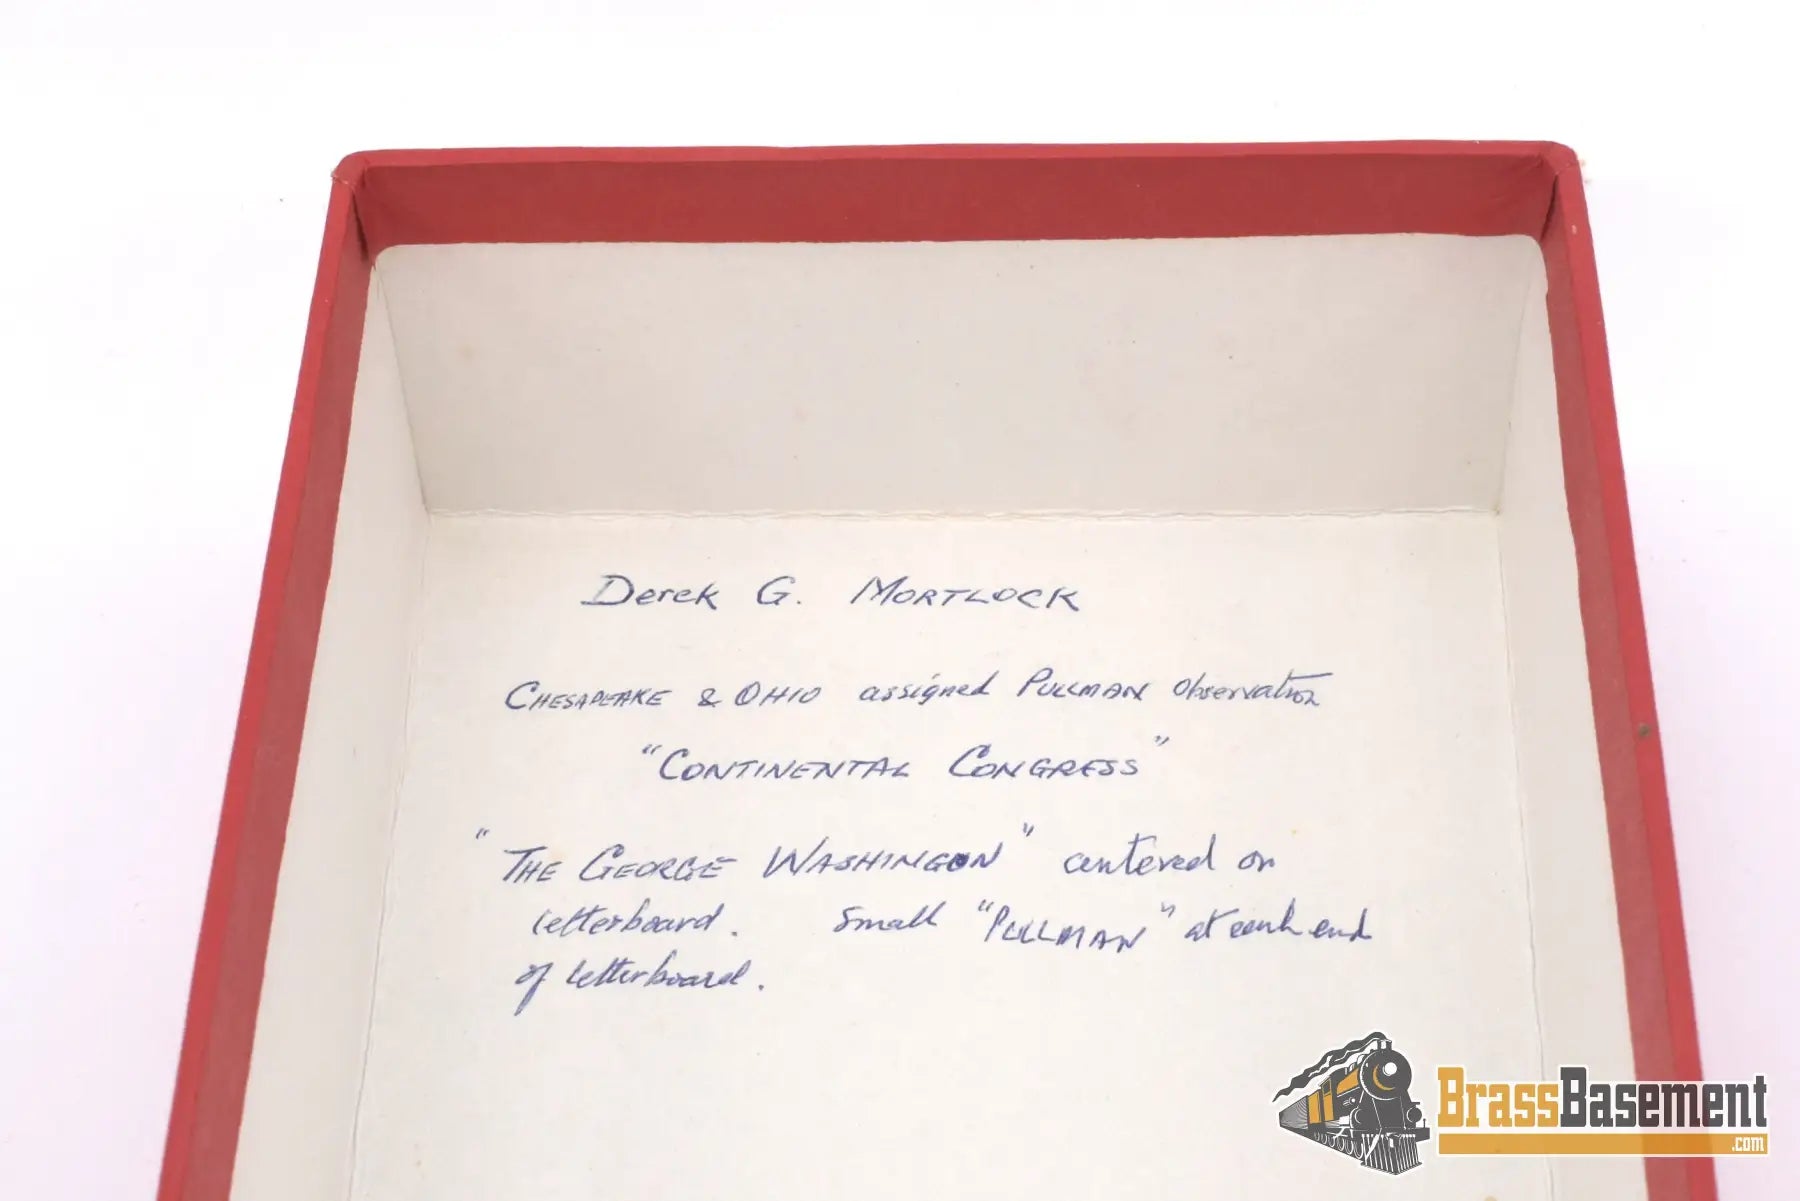 Derek G. MORTLOCK
CHESAPEAKE & OHIO assigned PULLMAN Observation
"CONTINENTAL CONGRESS"
"THE GEORGE WASHINGON" centered on
letterboard. Small "PULLMAN" at each end
of letterboard.
BrassBasement
.com